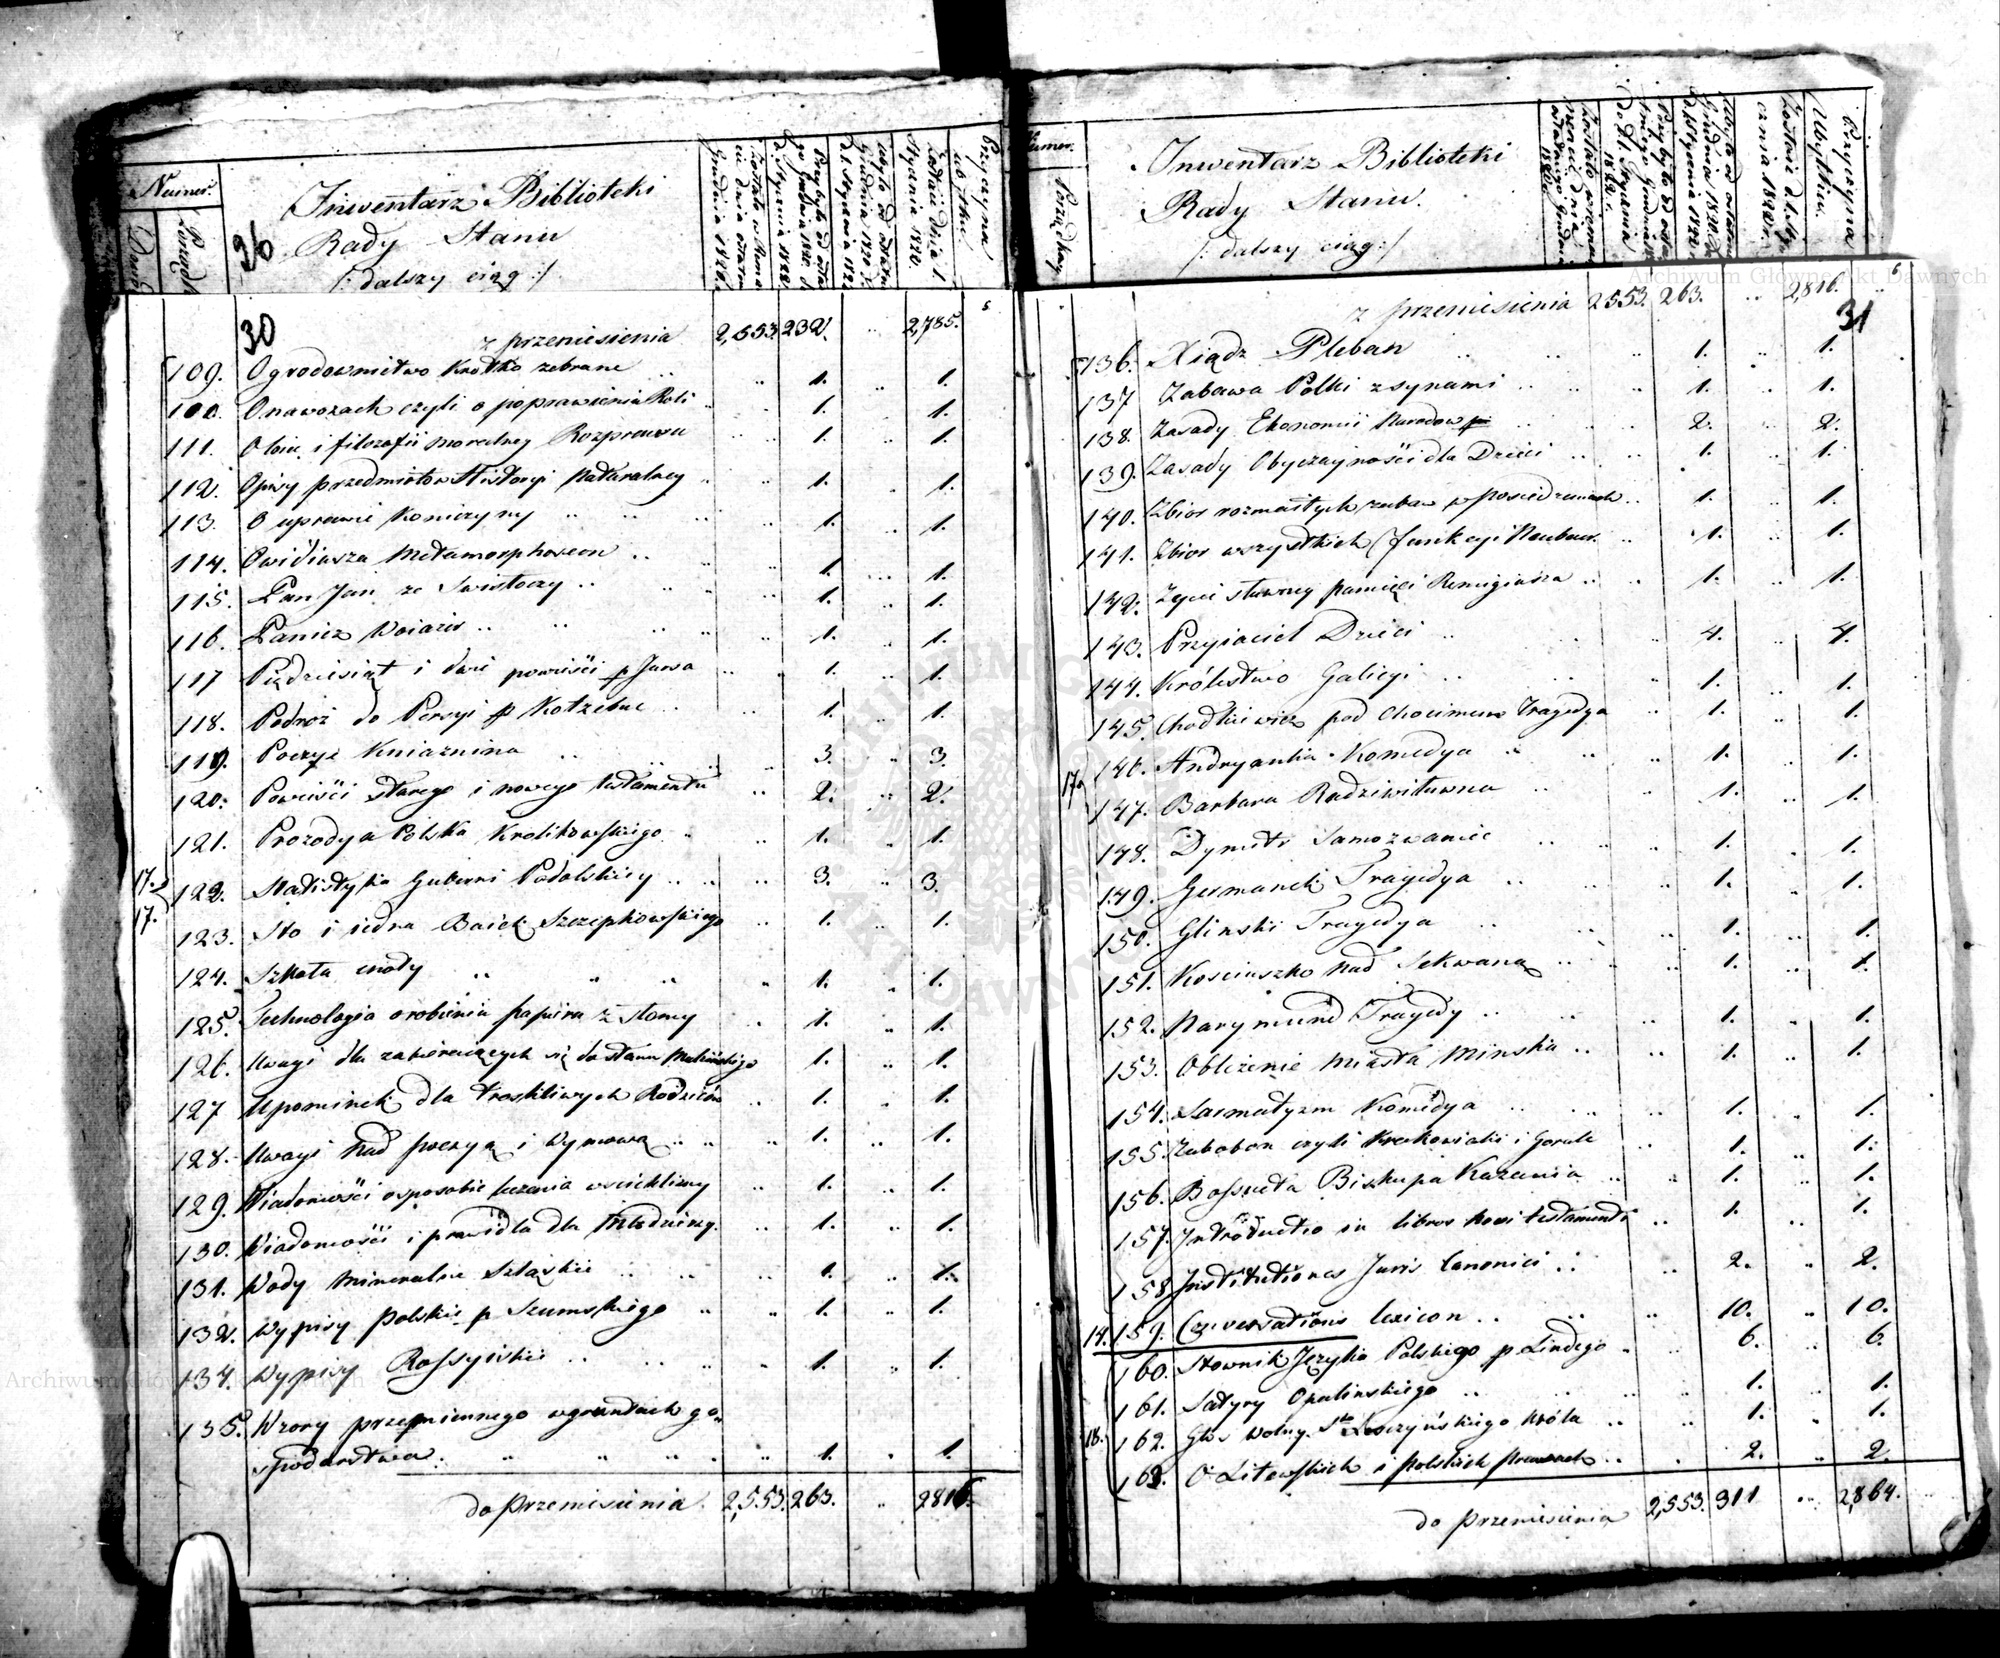 Numer
Porządk
Dowod
26
Inwentarz Biblioteki
Rady Stanu
/: dalszy ciąg :/
30
z przeniesienia 2,553. 232. .. 2,785.
109. Ogrodownictwo Krótko zebrane .. 1. .. 1.
100. O nawozach czyli o poprawieniu Roli .. 1. .. 1.
111. i filozofii moralney Rozprawa .. 1. .. 1.
112. Opisy przedmiotow Historyi Naturalney .. 1. .. 1.
113. O uprawie Koniczyny .. 1. .. 1.
114. Owidiusza Metamorphoseon .. 1. .. 1.
115. Pan Jan ze Swisłoczy .. 1. .. 1.
116. Panicz Woiazer .. 1. .. 1.
117 Piędziesiąt i dwi powieści p Jussa .. 1. .. 1.
118. Podroż do Persyi p Kotzebue .. 1. .. 1.
119. Poezye Kniaznina .. 3. .. 3.
120. Powieści starego i nowego testamentu .. 2. .. 2.
121. Prozodya Polska Krolikowskiego .. 1. .. 1.
17. 122. Statistyka Guberni Podolskiey .. 3. .. 3.
17. 123. Sto i iedna Baiek Szczepkowskiego .. 1. .. 1.
124. Szkoła cnoty .. 1. .. 1.
125. Technologia o robieniu papieru z słomy .. 1. .. 1.
126. Uwagi dla zabieraiących się do stanu Małżeńskiego 1. .. 1.
127 Upominek dla troskliwych Rodziców .. 1. .. 1.
128. Uwagi nad poezyą i Wymową .. 1. .. 1.
129. Wiadomości o sposobie leczenia wścieklizny .. 1. .. 1.
130. Wiadomości i prawidła dla Młodzieży. .. 1. .. 1.
131. Wody Mineralne Szląskie .. 1. .. 1.
132. Wypisy polskie p Szumskiego .. 1. .. 1.
134. Wypisy Rossyiskie .. 1. .. 1.
135. Wzory przemiennego w gruntach go-
spodarstwa .. 1. .. 1.
do przeniesienia . 2,553. 263. .. 2816.
Numer.
Porządkay
Inwentarz Biblioteki
Rady Stanu.
/: dalszy ciąg :/
Przyczyna
Ubytków.
z przeniesienia 2553. 263. .. 2,816. ..
31
136. Xiądz Pleban .. 1. .. 1.
137 Zabawa Polki z synami .. 1. .. 1.
138. Zasady Ekonomii Narodow .. 2. .. 2.
139. Zasady Obyczayności dla Dzieci .. 1. .. 1.
140. Zbior rozmaitych zabaw w posiedzeniach .. 1. .. 1.
141. Zbior wszystkich funkcyi .. 1. .. 1.
142. Zycie sławney pamięci Remigiusza .. 1. .. 1.
143. Przyiaciel Dzieci .. 4. .. 4.
144. Królestwo Galicyi .. 1. .. 1.
145. Chodkiewicz pod Chocimem Tragedya .. 1. .. 1.
146. Andryanka Komedya .. 1. .. 1.
17. 147. Barbara Radziwiłuwna .. 1. .. 1.
148. Dymitr Samozwaniec .. 1. .. 1.
149. Germanek Tragedya .. 1. .. 1.
150. Glinski Tragedya .. 1. .. 1.
151. Kosciuszko nad Sekwaną .. 1. .. 1.
152. Narymund Tragedy .. 1. .. 1.
153. Oblezenie Miasta Minska .. 1. .. 1.
154. Sarmatyzm Komedya .. 1. .. 1.
155. Zabobon czyli Krakowiaki i Gorale .. 1. .. 1.
156. Bossueta Biskupa Kazania .. 1. .. 1.
157. Introductio in libros novi testamenti .. 1. .. 1.
158 Institutiones Juris Canonici .. 2. .. 2.
14. 159. Conversations lexicon .. 10. .. 10.
160. Słownik Języka Polskiego p. Lindego .. 6. .. 6.
161. Satyry Opalinskiego .. 1. .. 1.
18. 162. Głos Wolny Sta Leszczyńskiego Króla .. 1. .. 1.
163. O Litewskich i polskich prawach .. 2. .. 2.
do przeniesienia 2,553. 311 .. 2,864.
Archiwum Główne Akt Dawnych